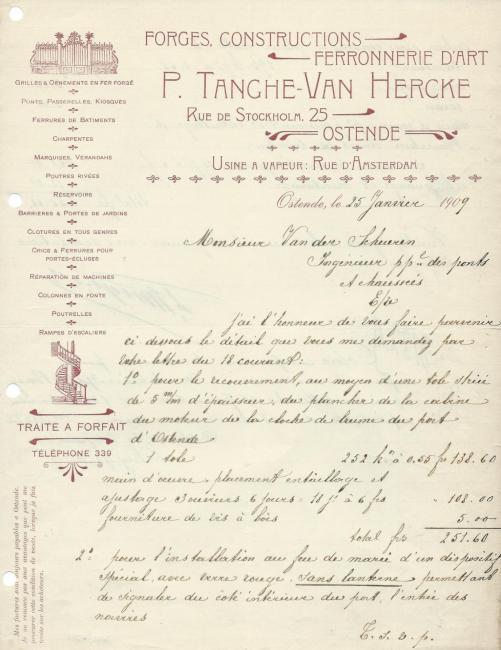 FORGES, CONSTRUCTIONS
FERRONNERIE D'ART
P. TANGHE-VAN HERCKE
RUE DE STOCKHOLM, 25
OSTENDE
USINE A VAPEUR: RUE D'AMSTERDAM
GRILLES & ORNEMENTS EN FER FORGÉ
PONTS, PASSERELLES, KIOSQUES
FERRURES DE BATIMENTS
CHARPENTES
MARQUISES, VERANDAHS
POUTRES RIVÉES
RÉSERVOIRS
BARRIÈRES & PORTES DE JARDINS
CLOTURES EN TOUS GENRES
CRICS & FERRURES POUR
PORTES-ÉCLUSES
RÉPARATION DE MACHINES
COLONNES EN FONTE
POUTRELLES
RAMPES D'ESCALIERS
TRAITE A FORFAIT
TÉLÉPHONE 339
Ostende, le 25 Janvier 1909
Monsieur Van der Schueren
Ingénieur pp.al des ponts
et chaussées
E/v
j'ai l'honneur de vous faire parvenir
ci dessous le détail que vous me demandez par
votre lettre du 18 courant:
1° pour le recouvrement, au moyen d'une tole striée
de 5 m/m d'épaisseur, du plancher de la cabine
du moteur de la cloche de brume du port
d'Ostende
1 tole 252 k° à 0.55 fr 138.60
main d'œuvre placement entaillage et
ajustage 3 ouvriers 6 jours: 18 j à 6 frs " 108.00
fourniture de vis à bois 5.00
total frs 251.60
2° pour l'installation au feu de marée d'un dispositif
spécial, avec verre rouge, sans lanterne permettant
de signaler du coté intérieur du port, l'entrée des
navires
T. S. V. p.
Mes factures sont toujours payables à Ostende.